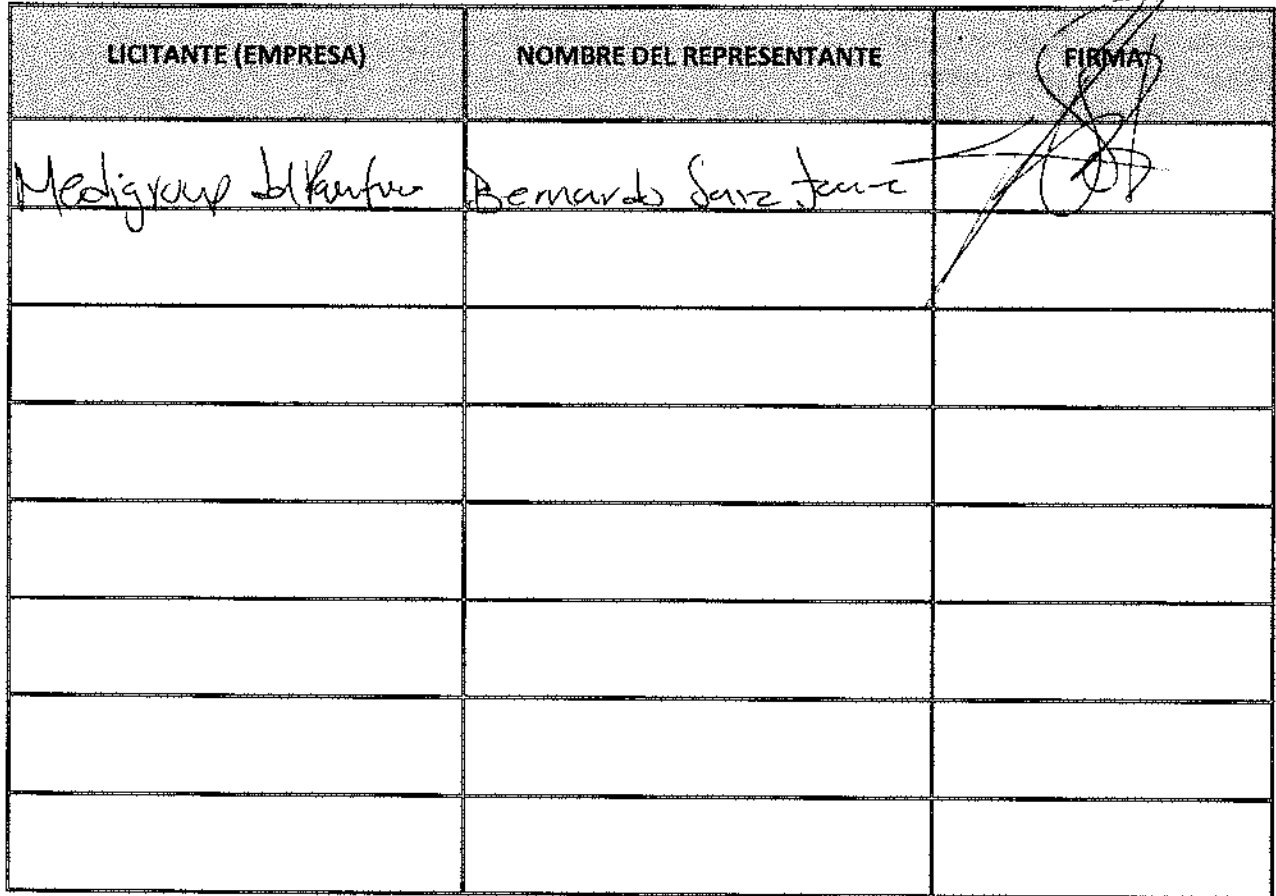 LICITANTE (EMPRESA) NOMBRE DEL REPRESENTANTE FIRMA
Medigroup del Pacifico Bernardo Sanz